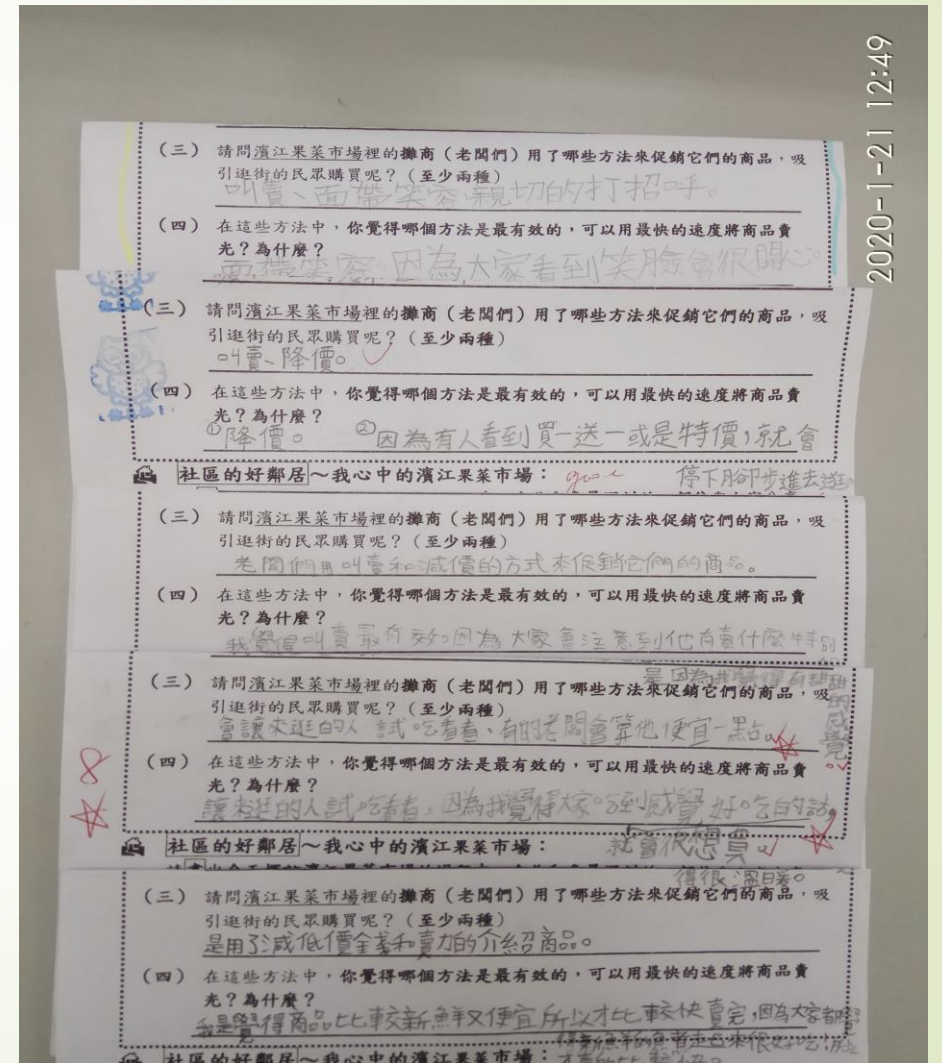 2020-1-21 12:49
(三) 請問濱江果菜市場裡的攤商(老闆們)用了哪些方法來促銷它們的商品,吸
引逛街的民眾購買呢?(至少兩種)
叫賣、面帶笑容親切的打招呼。
(四) 在這些方法中,你覺得哪個方法是最有效的,可以用最快的速度將商品賣
光?為什麼?
面帶笑容。因為大家看到笑臉會很開心。
(三) 請問濱江果菜市場裡的攤商(老闆們)用了哪些方法來促銷它們的商品,吸
引逛街的民眾購買呢?(至少兩種)
叫賣、降價。
(四) 在這些方法中,你覺得哪個方法是最有效的,可以用最快的速度將商品賣
光?為什麼?
①降價。 ②因為有人看到買一送一或是特價,就會
停下腳步進去逛。
社區的好鄰居~我心中的濱江果菜市場: good
(三) 請問濱江果菜市場裡的攤商(老闆們)用了哪些方法來促銷它們的商品,吸
引逛街的民眾購買呢?(至少兩種)
老闆們用叫賣和減價的方式來促銷它們的商品。
(四) 在這些方法中,你覺得哪個方法是最有效的,可以用最快的速度將商品賣
光?為什麼?
我覺得叫賣最有效。因為大家會注意到他有賣什麼特別
是因為我覺得有甜甜
的感覺。
(三) 請問濱江果菜市場裡的攤商(老闆們)用了哪些方法來促銷它們的商品,吸
引逛街的民眾購買呢?(至少兩種)
會讓來逛的人試吃看看、有的老闆會算他便宜一點。
(四) 在這些方法中,你覺得哪個方法是最有效的,可以用最快的速度將商品賣
光?為什麼?
讓來逛的人試吃看看,因為我覺得大家吃到感覺好吃的話。
就會很想買。
8
社區的好鄰居~我心中的濱江果菜市場:
得很溫暖。
(三) 請問濱江果菜市場裡的攤商(老闆們)用了哪些方法來促銷它們的商品,吸
引逛街的民眾購買呢?(至少兩種)
是用了減低價金錢和賣力的介紹商品。
(四) 在這些方法中,你覺得哪個方法是最有效的,可以用最快的速度將商品賣
光?為什麼?
我是覺得商品比較新鮮又便宜所以才比較快賣完,因為大家都覺
社區的好鄰居~我心中的濱江果菜市場: